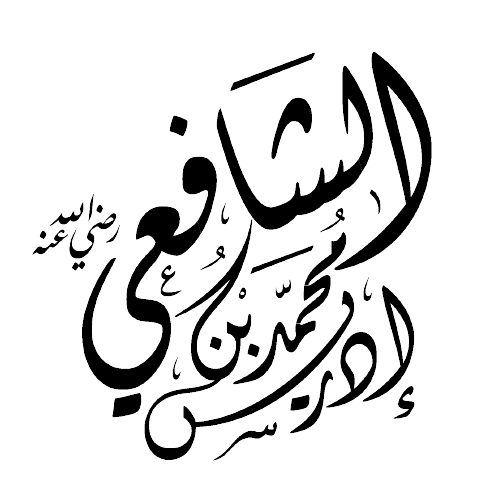 الشافعي
محمد بن
إدريس
رضي الله عنه